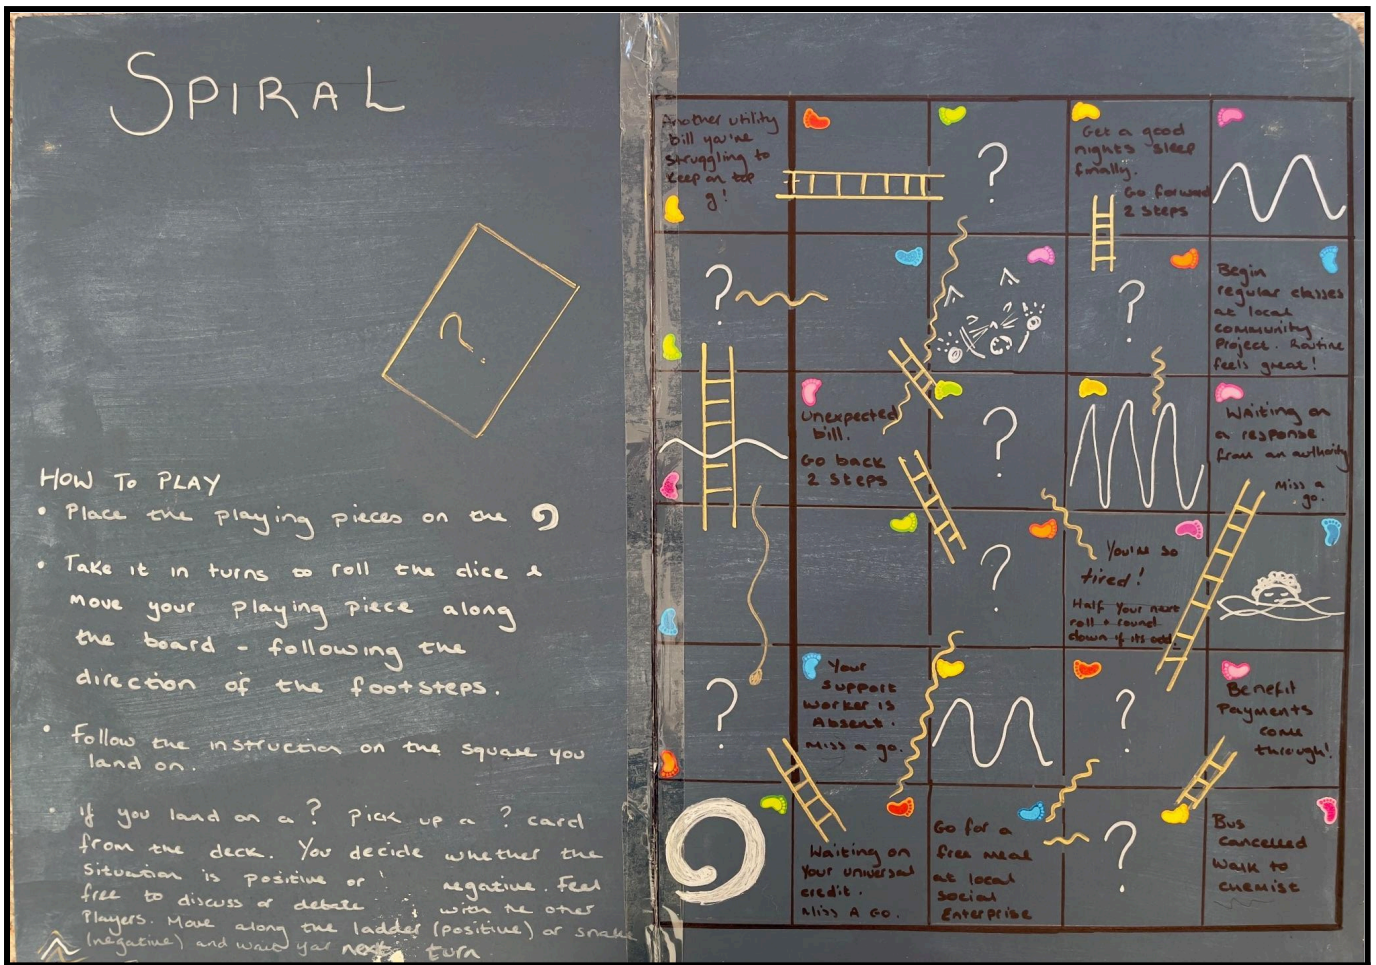 SPIRAL
?
HOW TO PLAY
• Place the playing pieces on the
• Take it in turns to roll the dice &
move your playing piece along
the board - following the
direction of the footsteps.
• Follow the instruction on the square you
land on.
• If you land on a ? pick up a ? card
from the deck. You decide whether the
situation is positive or negative. Feel
free to discuss or debate with the other
players. Move along the ladder (positive) or snake
(negative) and wait your next turn.
Another utility
bill you're
struggling to
keep on top
of!
?
Get a good
nights sleep
finally.
Go forward
2 steps
?
?
Begin
regular classes
at local
community
Project. Routine
feels great!
Unexpected
bill.
Go back
2 steps
?
Waiting on
a response
from an authority
Miss a
go.
?
You're so
tired!
Half your next
roll & round
down if its odd.
?
Your
support
worker is
Absent.
Miss a go.
?
Benefit
Payments
come
through!
Waiting on
your universal
credit.
Miss A Go.
Go for a
free meal
at local
social
Enterprise
?
Bus
cancelled
walk to
chemist